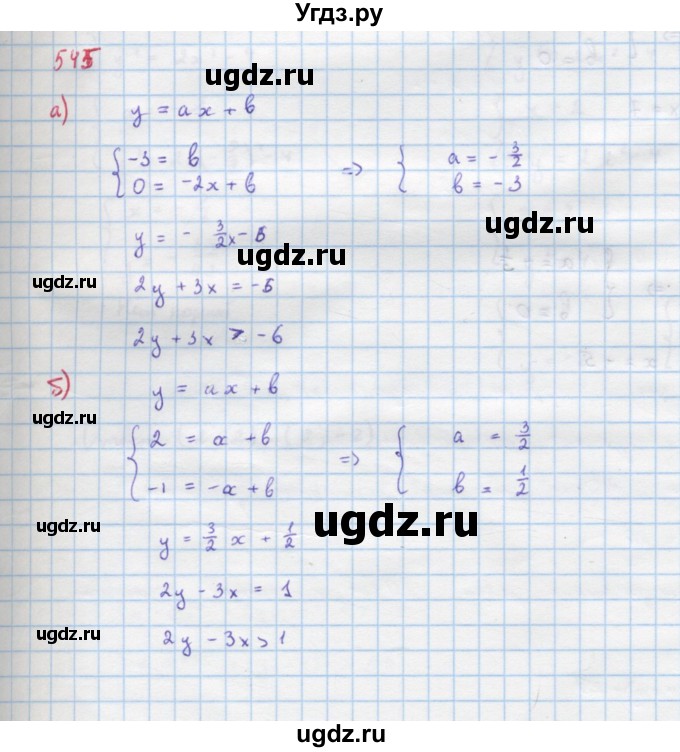 Угдз.ру
545
ugdz.ru
а) y = ax + b
{ -3 = b
0 = -2x + b => { a = - 3/2
b = -3
ugdz.ru
y = - 3/2 x - 5
ugdz.ru
ugdz.ru
2y + 3x = -5
2y + 3x > -6
б) y = ax + b
ugdz.ru
{ 2 = a + b
-1 = -a + b => { a = 3/2
b = 1/2
ugdz.ru
ugdz.ru
y = 3/2 x + 1/2
2y - 3x = 1
ugdz.ru
2y - 3x > 1
ugdz.ru